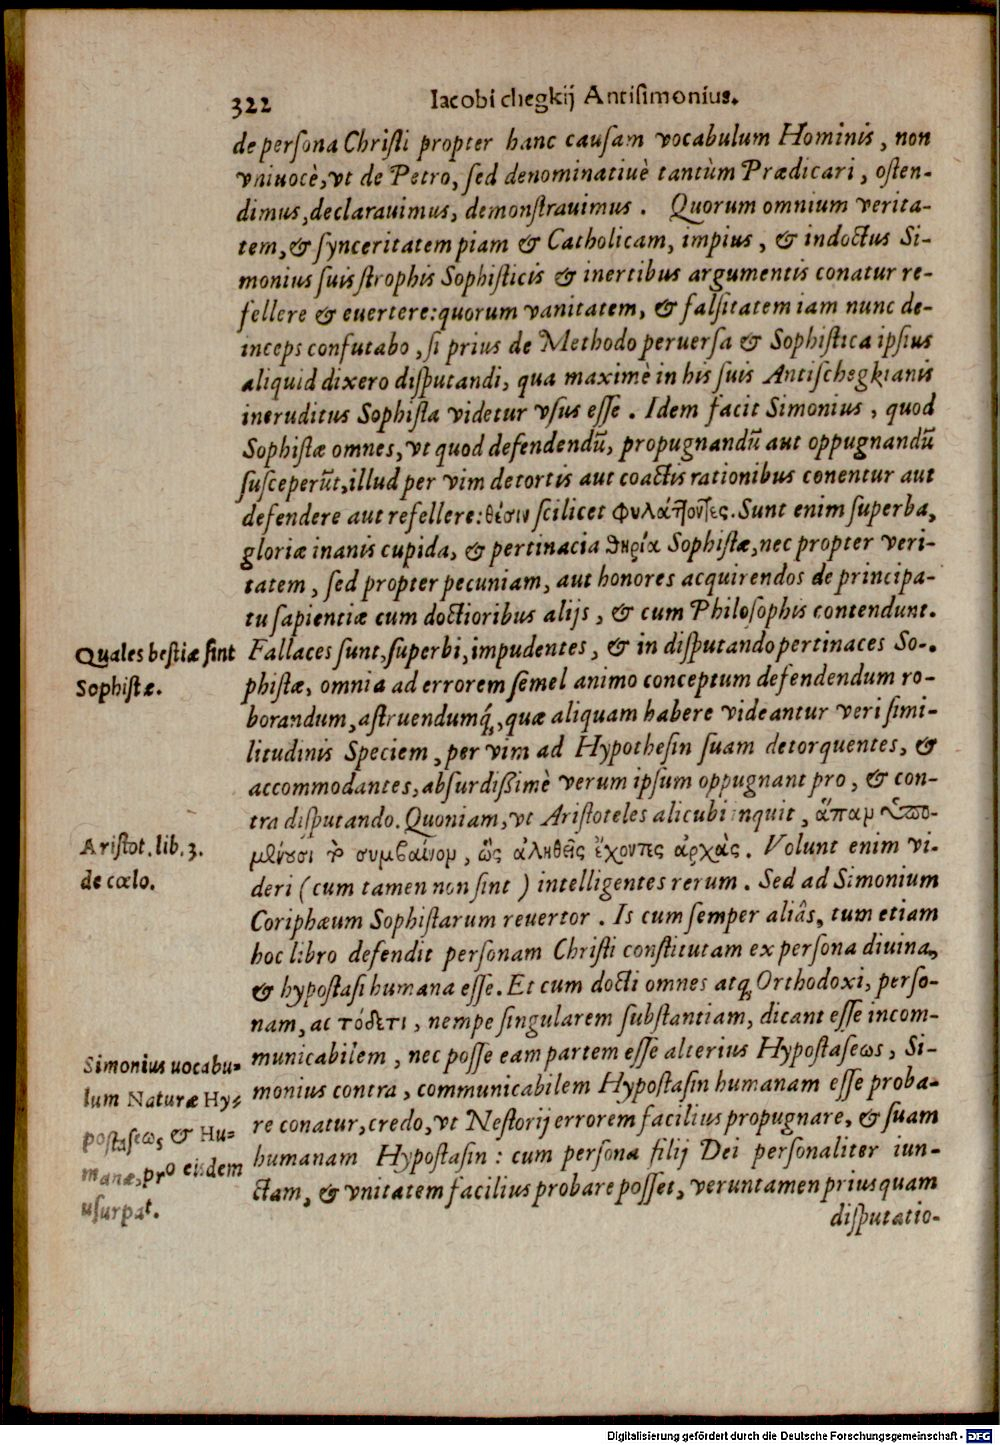 322 Iacobi chegkij Antisimonius.
de persona Christi propter hanc causam vocabulum Hominis, non
vniuocè, vt de Petro, sed denominatiuè tantùm Prædicari, osten-
dimus, declarauimus, demonstrauimus. Quorum omnium verita-
tem, & synceritatem piam & Catholicam, impius, & indoctus Si-
monius suis strophis Sophisticis & inertibus argumentis conatur re-
fellere & euertere: quorum vanitatem, & falsitatem iam nunc de-
inceps confutabo, si prius de Methodo peruersa & Sophistica ipsius
aliquid dixero disputandi, qua maximè in his suis Antischegkianis
ineruditus Sophista videtur vsus esse. Idem facit Simonius, quod
Sophistæ omnes, vt quod defendendũ, propugnandũ aut oppugnandũ
susceperũt, illud per vim detortis aut coactis rationibus conentur aut
defendere aut refellere: θέσιν scilicet φυλάττοντες. Sunt enim superba,
gloriæ inanis cupida, & pertinacia θηρία Sophistæ, nec propter veri-
tatem, sed propter pecuniam, aut honores acquirendos de principa-
tu sapientiæ cum doctioribus alijs, & cum Philosophis contendunt.
Quales bestiæ sint
Sophistæ.
Fallaces sunt, superbi, impudentes, & in disputando pertinaces So-
phistæ, omnia ad errorem semel animo conceptum defendendum ro-
borandum, astruendumq́, quæ aliquam habere videantur veri simi-
litudinis Speciem, per vim ad Hypothesin suam detorquentes, &
accommodantes, absurdißimè verum ipsum oppugnant pro, & con-
tra disputando. Quoniam, vt Aristoteles alicubi inquit, ἅπαν ὑπο-
Aristot. lib. 3.
de cœlo.
μένουσι τὸ συμβαῖνον, ὡς ἀληθεῖς ἔχοντες ἀρχὰς. Volunt enim vi-
deri (cum tamen non sint) intelligentes rerum. Sed ad Simonium
Coriphæum Sophistarum reuertor. Is cum semper aliâs, tum etiam
hoc libro defendit personam Christi constitutam ex persona diuina,
& hypostasi humana esse. Et cum docti omnes atq́ Orthodoxi, perso-
nam, ac τόδετι, nempe singularem substantiam, dicant esse incom-
Simonius uocabu-
lum Naturæ Hy-
postaseωs & Hu-
manæ, pro eisdem
usurpat.
municabilem, nec posse eam partem esse alterius Hypostaseωs, Si-
monius contra, communicabilem Hypostasin humanam esse proba-
re conatur, credo, vt Nestorij errorem facilius propugnare, & suam
humanam Hypostasin: cum persona filij Dei personaliter iun-
ctam, & vnitatem facilius probare posset, veruntamen priusquam
disputatio-
Digitalisierung gefördert durch die Deutsche Forschungsgemeinschaft - DFG